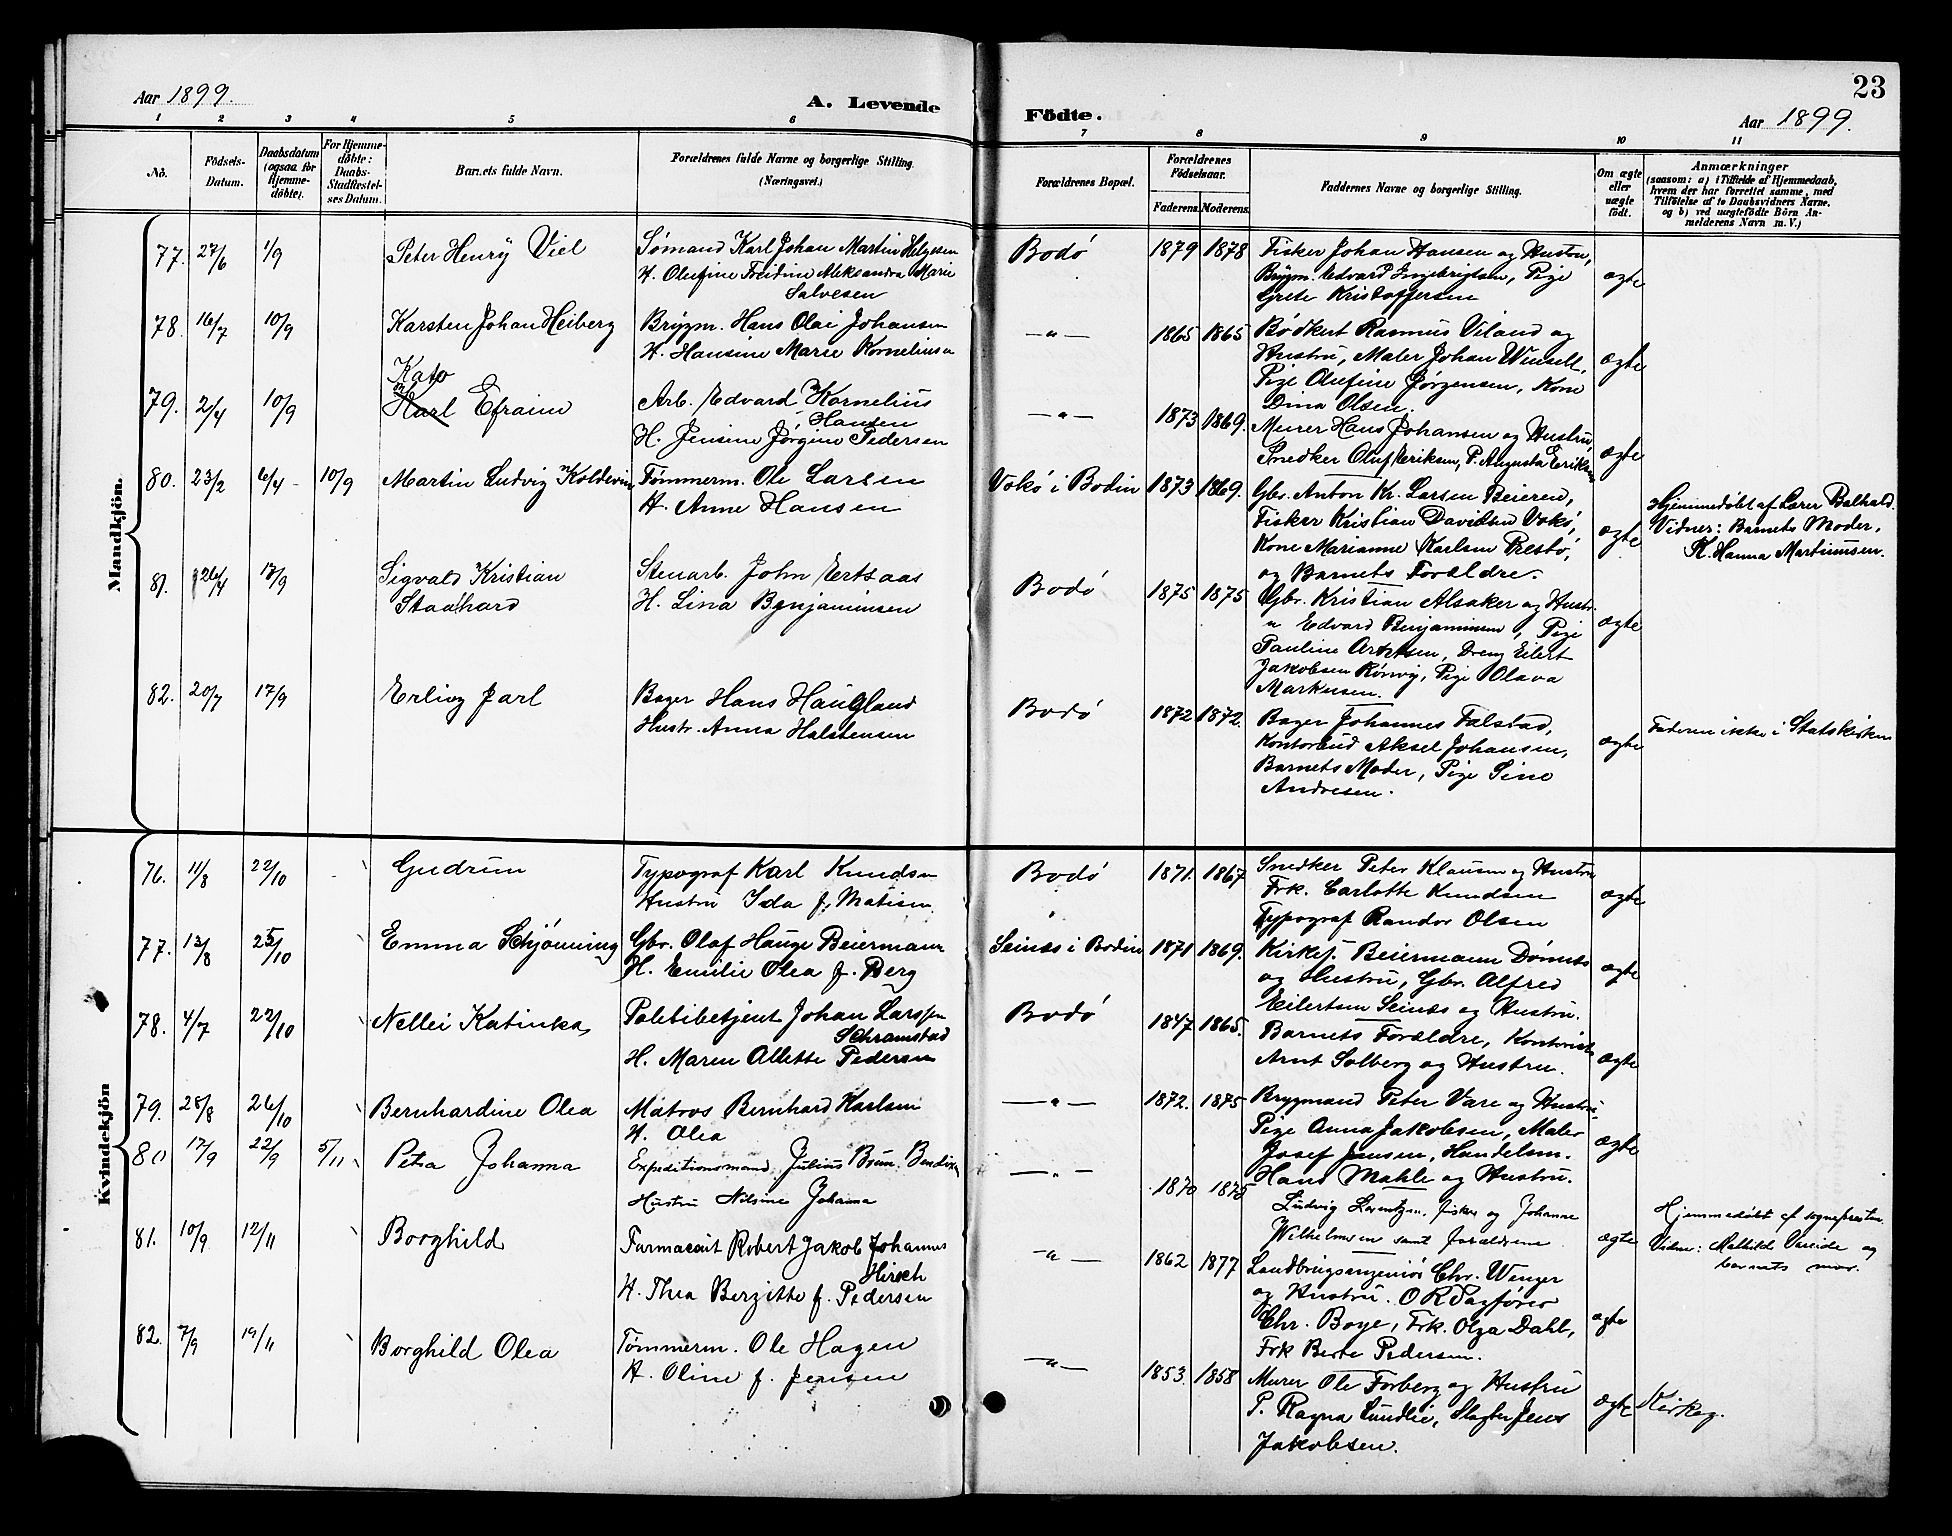 23
Aar 1899.
A. Levende
Födte.
Aar 1899.
1 2 3 4 5 6 7 8 9 10 11
No.
Födsels-Datum.
Daabsdatum (ogsaa for Hjemme-döbte).
For Hjemme-döbte: Daabs-Stadfæstel-ses Datum.
Barnets fulde Navn.
Forældrenes fulde Navne og borgerlige Stilling. (Næringsvei.)
Forældrenes Bopæl.
Forældrenes Födselsaar.
Faderens. Moderens.
Faddernes Navne og borgerlige Stilling.
Om ægte eller uægte födt.
Anmærkninger
(saasom: a) i Tilfælde af Hjemmedaab,
hvem der har forrettet samme, med
Tilföielse af to Daabsvidners Navne,
og b) ved uægtefödte Börn An-
melderens Navn m. V.)
Mandkjön.
77. 27/6 1/9 Peter Henry Viel
Sømand Karl Johan Martin Helgesen
H. Olufine Fredine Aleksandra Marie
Salvesen
Bodø 1879 1878
Fisker Johan Hansen og Hustru,
Brygm. Edvard Ingebrigtsen, Pige
Grete Kristoffersen
ægte
78. 16/7 10/9 Karsten Johan Heiberg
Brygm. Hans Olai Johansen
H. Hansine Marie Kornelius
—"— 1865 1865
Bødkert Rasmus Viland og
Hustru, Maler Johan
Pige Olufine Jørgensen, Kone
Dina Olsen.
ægte
79. 2/4 10/9 Kato
Karl Efraim
Arb. Edvard Kornelius
Hansen
H. Jensine Jørgine Pedersen
—"— 1873 1869.
Murer Hans Johansen og Hustru,
Snedker Oluf Eriksen, P. Augusta Eriksen
ægte
80. 23/2 6/4 - 10/9 Martin Ludvig Koldevin
Tømmerm. Ole Larsen
H. Anne Hansen
Vokø i Bodin 1873 1869.
Gbr. Anton Kr. Larsen Beieren,
Fisker Kristian Davidsen Vokø,
Kone Marianne Karlsen Prestø,
og Barnets Forældre.
ægte
Hjemmedøbt af Lærer Balhald.
Vidner: Barnets Moder,
K. Hanna Martinusen.
81. 26/4 17/9 Sigvald Kristian
Staalhard
Stenarb. John Ertsaas
H. Lina Benjaminsen
Bodø 1875 1875
Gbr. Kristian Alsaker og Hustr.
" Edvard Benjaminsen, Pige
Pauline Arntsen, Dreng Eilert
Jakobsen Rønvig, Pige Olava
Markusen.
ægte
82. 20/7 17/9 Erling Jarl
Bager Hans Haugland
Hustr. Anna Halstensen
Bodø 1872 1872.
Bager Johannes Falstad,
Kontorbud Aksel Johansen,
Barnets Moder, Pige Sine
Andresen.
ægte
Faderen ikke i Statskirken
Kvindekjön
76. 11/8 22/10 Gudrun
Typograf Karl Knudsen
Hustru Ida f. Matisen
Bodø 1871. 1867
Snedker Peter Klausen og Hustru
Frk. Carlotte Knudsen
Typograf Randor Olsen
ægte
77. 13/8 25/10 Emma Schjønning
Gbr. Olaf Hauge Beiermann
H. Emilie Olea f. Berg
Seines i Bodin 1871 1869.
Kirkesj. Beiermann Dønnes
og Hustru, Gbr. Alfred
Eilertsen Seines og Hustru.
ægte
78. 4/7 22/10 Nellei Katinka
Politibetjent Johan Larssen
Schramstad
H. Maren Allette Pedersen
Bodø 1847 1865.
Barnets Forældre, Kontorist
Arnt Solberg og Hustru.
ægte
79. 28/8 26/10 Bernhardine Olea
Matros Bernhard Karlsen
H. Olea
—"— 1872. 1875
Brygmand Peter Vare og Hustru,
Pige Anna Jakobsen, Maler
Josef Jensen, Handelsm.
Hans Mahle og Hustru.
ægte
80 17/9 22/9 5/11 Petra Johanna
Expeditionsmand Julius Brun Bendixen
Hustru Nilsine Johanna
—"— 1870 1875
Ludvig Lorentzen, fisker og Johanne
Wilhelmsen samt forældrene
ægte
Hjemmedøbt af sognepresten.
Vidne: Mathild Vareide og
barnets mor.
81. 10/9 12/11 Borghild
Farmaceut Robert Jakob Johannes
Hirsch
H. Thea Bergitte f. Pedersen
—"— 1862 1877
Landbrugsingeniør Chr. Wenger
og Hustru. O R Sagfører
Chr. Boye, Frk. Olga Dahl,
Frk Berte Pedersen.
ægte
82. 7/9 19/11 Borghild Olea
Tømmerm. Ole Hagen
H. Oline f. Jensen
—"— 1853. 1858
Murer Ole Forberg og Hustru
P. Ragna Lundlie, Slagter Jens
Jakobsen.
ægte
Kirkeg.